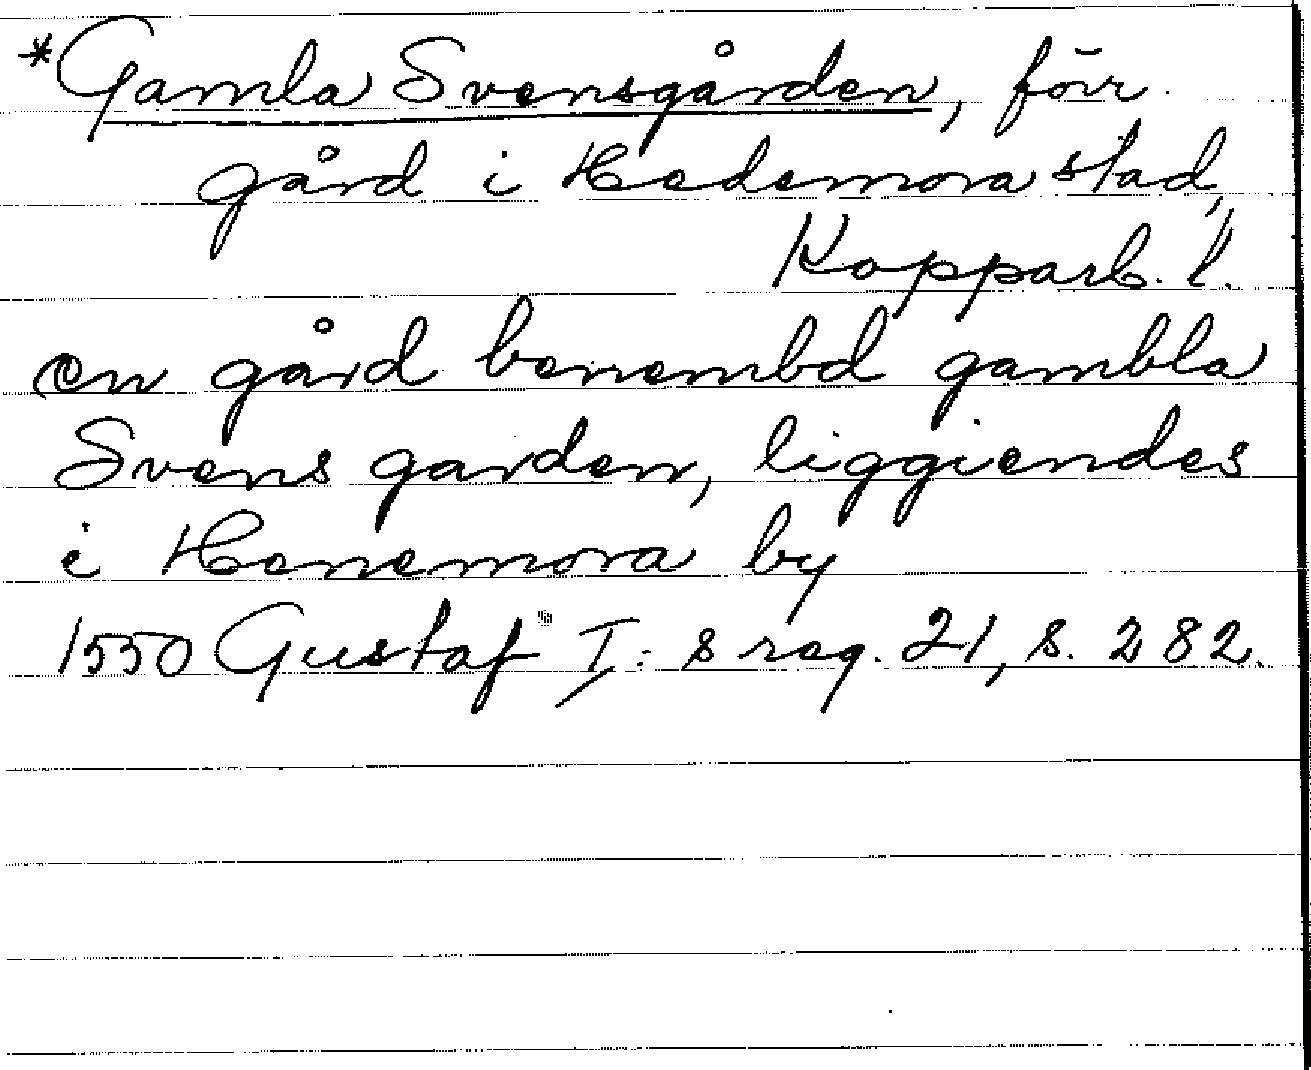 *Gamla Svensgården, förr
gård i Hedemora stad,
Kopparb. l.
en gård benembd gambla
Svens garden, liggiendes
i Henemora by
1550 Gustaf I: s reg. 21, s. 282.